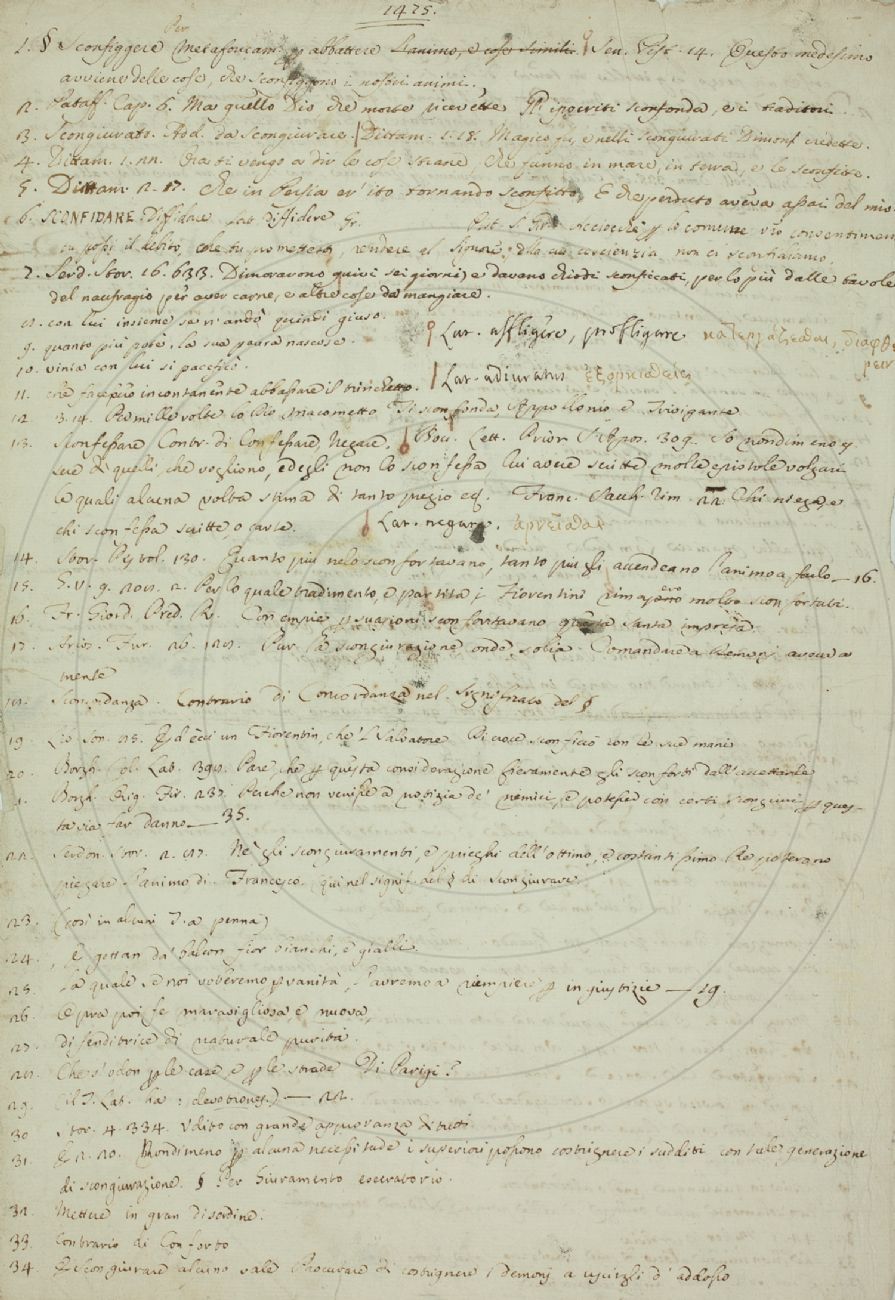 1475.
Per
1. § Sconfiggere Metaforicam. p abbattere l'animo, e cose simili. Sen. Pist. 14. Questo medesimo
avviene delle cose, che sconfiggono i nostri animi.
2. Pataff. Cap. 6. Ma quello Dio che morte ricevette Gl'ipocriti sconfonda, e i traditori.
3. Scongiurato. Add. da Scongiurare. Dittam. 1. 18. Magico fu, e nelli scongiurati Dimonj credette.
4. Dittam. 1. 22. Ora ti vengo a dir le cose strane, Che fanno in mare, in terra, e le sconfitte.
5. Dittam. 2. 17. Che in Persia er' ito tornando sconfitto, E che perduto aveva assai del mio
6. SCONFIDARE Diffidare Lat. diffidere Gr. acciocchè p lo comune consentimen
il debito, che tu promettesti, rendere al Signore, della tua coscienzia non ci scontiamo.
7. Serd. Stor. 16. 633. Dimoravono quivi sei giorni, e davano chiodi sconficcati, per lo più dalle tavole
del naufragio per aver carne, e altre cose da mangiare.
8. con lui insieme se n'andò quindi giuso.
Lat. affligere, profligare
9. quanto più pote, la sua paura nascose.
10. vinia con lui si pacificò.
Lat. adiuratus ἐξορκισθείς
11. che facessero incontanente abbassare il
12. 3. 14. Che mille volte Macometto Ti sconfonda, Appollonio e Trivigante.
13. Sconfessare Contr. di Confessare, Negare. Bocc. Lett. Prior S. Apos. 309. Io nondimeno
di quelli, che vogliono, ed egli non lo sconfessa lui avere scritte molte epistole volgari
le quali alcuna volta stima di tanto pregio ec. Franc. Sacch. rim. 22. Chi niega, e
chi sconfessa scritte, o carte. Lat. negare. ἀρνεῖσθαι
14. Stor. Pistol. 130. Quanto più nelo sconfortavano, tanto più gli accendeano l'animo a farlo — 16.
15. G. V. 9. 208. 2. Per lo quale tradimento, e partita i Fiorentini rimasero molto sconfortati.
16. Fr. Giord. Pred. R. Con empie psuasioni sconfortavano questa santa impresa
17. Arios. Fur. 26. 128. Pur la scongiurazione, onde solea Comandare a' demonj aveva a
mente
18. Sconcordanza. Contrario di Concordanza nel signficato del §
19. Son. 25. Ed ècci un Fiorentin, che 'l Salvatore Di croce sconficcò con le sue mani
20. Borgh. Col. Lat. 398. Pare, che p questa considerazione fieramente gli sconforti dall'accettarle
21. Borgh. Orig. Fir. 237. Perche non venisse a notizia de' nemici, e potesser con certi scongiuri p ques-
ta via far danno — 35.
22. Serdon. Stor. 2. 87. Nè gli scongiuramenti, e prieghi dell'ottimo, e costantissimo Re poterono
piegare l'animo di Francesco. (qui nel signif. del § di scongiurare.
23. (così in alcuni T. a penna)
24. , E gettan da' balcon fior bianchi, e gialli.
25. La quale se noi voberemo p vanità, l'avremo a riempiere p ingiustizie — 19.
26. Opra poi fe maravigliosa, e nuova,
27. difenditrice di naturale purità.
28. Che s'odon ple case, e ple strade Di Parigi?
29. (il T. Lat. ha: devotiones.) — 22.
30. Stor. 4. 334. Udito con grande approvanza di tutti
31. E 2. 20. Nondimeno p alcuna necessitude i superiori possono costrignere i sudditi con tale generazione
di scongiurazione. § Per Giuramento esecratorio.
32. Mettere in gran disordine.
33. Contrario di Conforto
34. E Scongiurare alcuno vale Proccurare di costrignere i demonj a uscirgli d'addosso